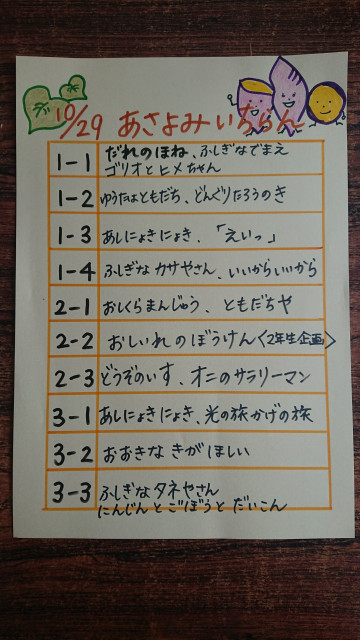 10/29 あさよみいちらん
1-1 だれのほね、ふしぎなでまえ
ゴリオとヒメちゃん
1-2 ゆうたはともだち、どんぐりたろうのき
1-3 あしにょきにょき、「えいっ」
1-4 ふしぎなカサやさん、いいからいいから
2-1 おしくらまんじゅう、ともだちや
2-2 おしいれのぼうけん〈2年生企画〉
2-3 どうぞのいす、オニのサラリーマン
3-1 あしにょきにょき、光の旅かげの旅
3-2 おおきなきがほしい
3-3 ふしぎなタネやさん
にんじんとごぼうとだいこん